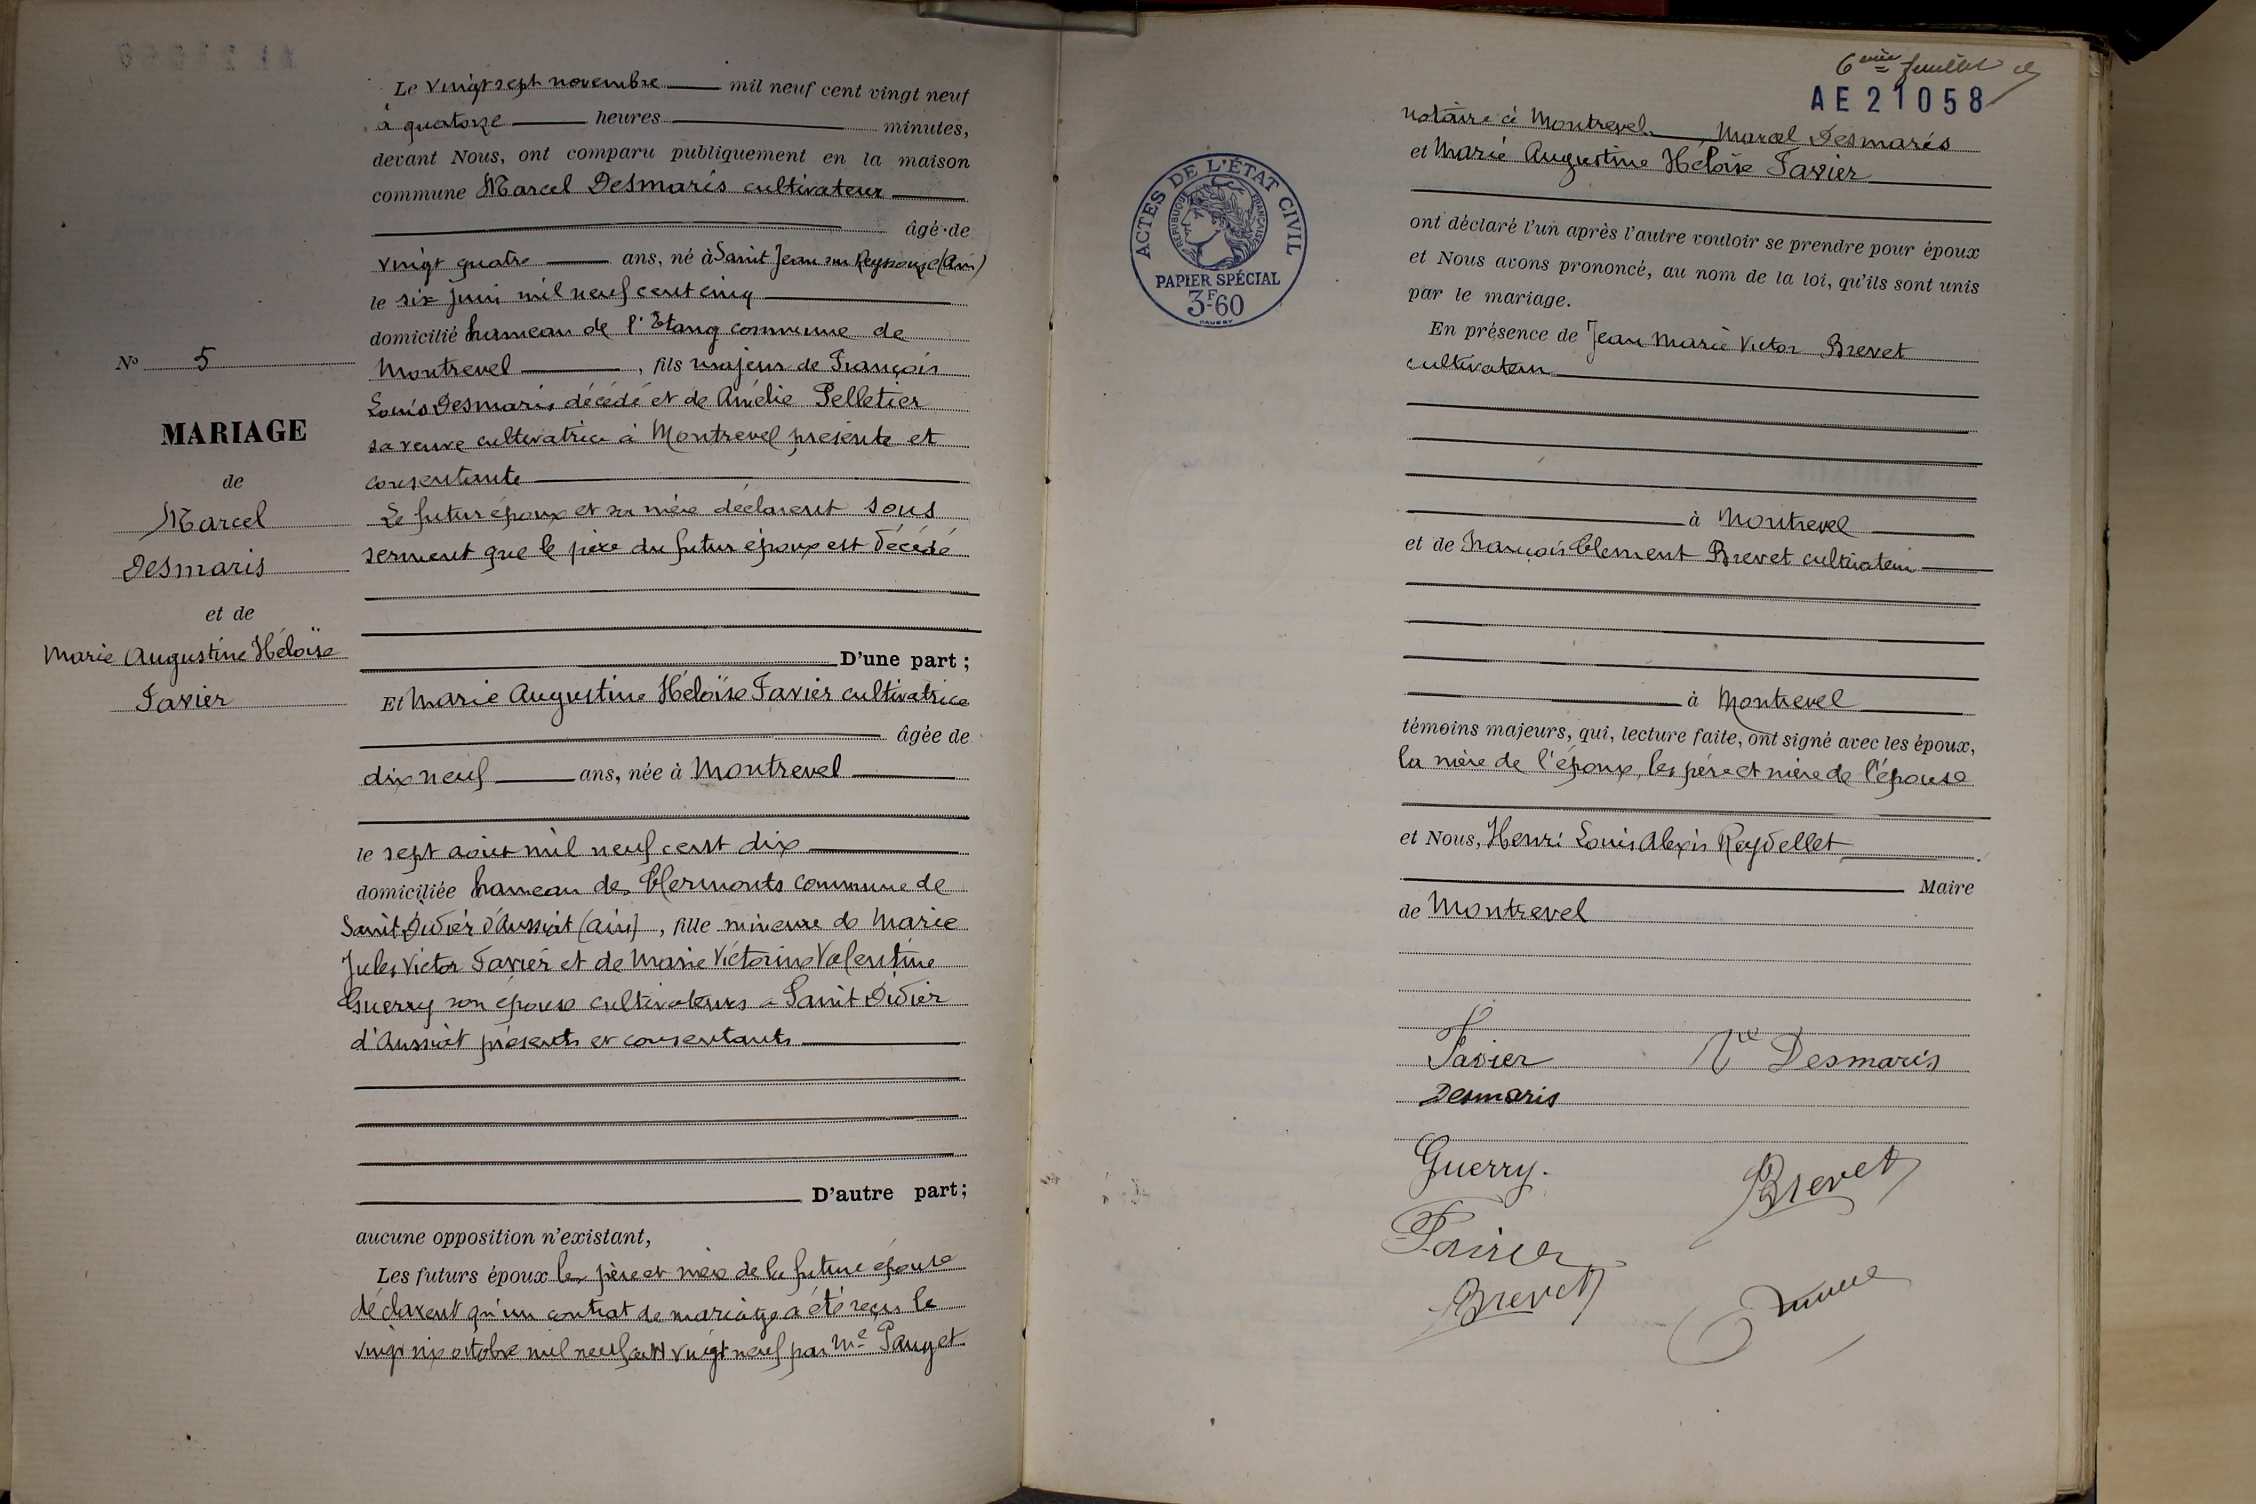 Le vingt sept novembre mil neuf cent vingt neuf
à quatorze heures minutes,
devant Nous, ont comparu publiquement en la maison
commune Marcel Desmaris cultivateur
âgé de
vingt quatre ans, né à Saint Jean sur Reyssouze (Ain)
le six juin mil neuf cent cinq
domicilié hameau de l'Etang commune de
Montrevel, fils majeur de François
Louis Desmaris décédé et de Amélie Pelletier
sa veuve cultivatrice à Montrevel présente et
consentante
Le futur époux et sa mère déclarent sous
serment que le père du futur époux est décédé
D'une part;
Et Marie Augustine Héloïse Favier cultivatrice
âgée de
dix neuf ans, née à Montrevel
le sept août mil neuf cent dix
domiciliée hameau des Clermonts commune de
Saint Didier d'Aussiat (Ain), fille mineure de Marie
Jules Victor Favier et de Marie Victorine Valentine
Guerry son épouse cultivateurs à Saint Didier
d'Aussiat présents et consentants
D'autre part;
aucune opposition n'existant,
Les futurs époux les père et mère de la future épouse
déclarent qu'un contrat de mariage a été reçu le
vingt six octobre mil neuf cent vingt neuf par Me Pauget
No 5
MARIAGE
de
Marcel
Desmaris
et de
Marie Augustine Héloïse
Favier
6ème feuillet
AE21058
ACTES DE L'ÉTAT CIVIL
RÉPUBLIQUE FRANÇAISE
PAPIER SPÉCIAL
3F-60
notaire à Montrevel. Marcel Desmarés
et Marie Augustine Héloïse Favier
ont déclaré l'un après l'autre vouloir se prendre pour époux
et Nous avons prononcé, au nom de la loi, qu'ils sont unis
par le mariage.
En présence de Jean Marie Victor Brevet
cultivateur
à Montrevel
et de François Clement Brevet cultivateur
à Montrevel
témoins majeurs, qui, lecture faite, ont signé avec les époux,
la mère de l'époux, les père et mère de l'épouse
et Nous, Henri Louis Alexis Reydellet
Maire
de Montrevel
Favier Vve Desmaris
Desmaris
Guerry. Brevet
Favier
Brevet